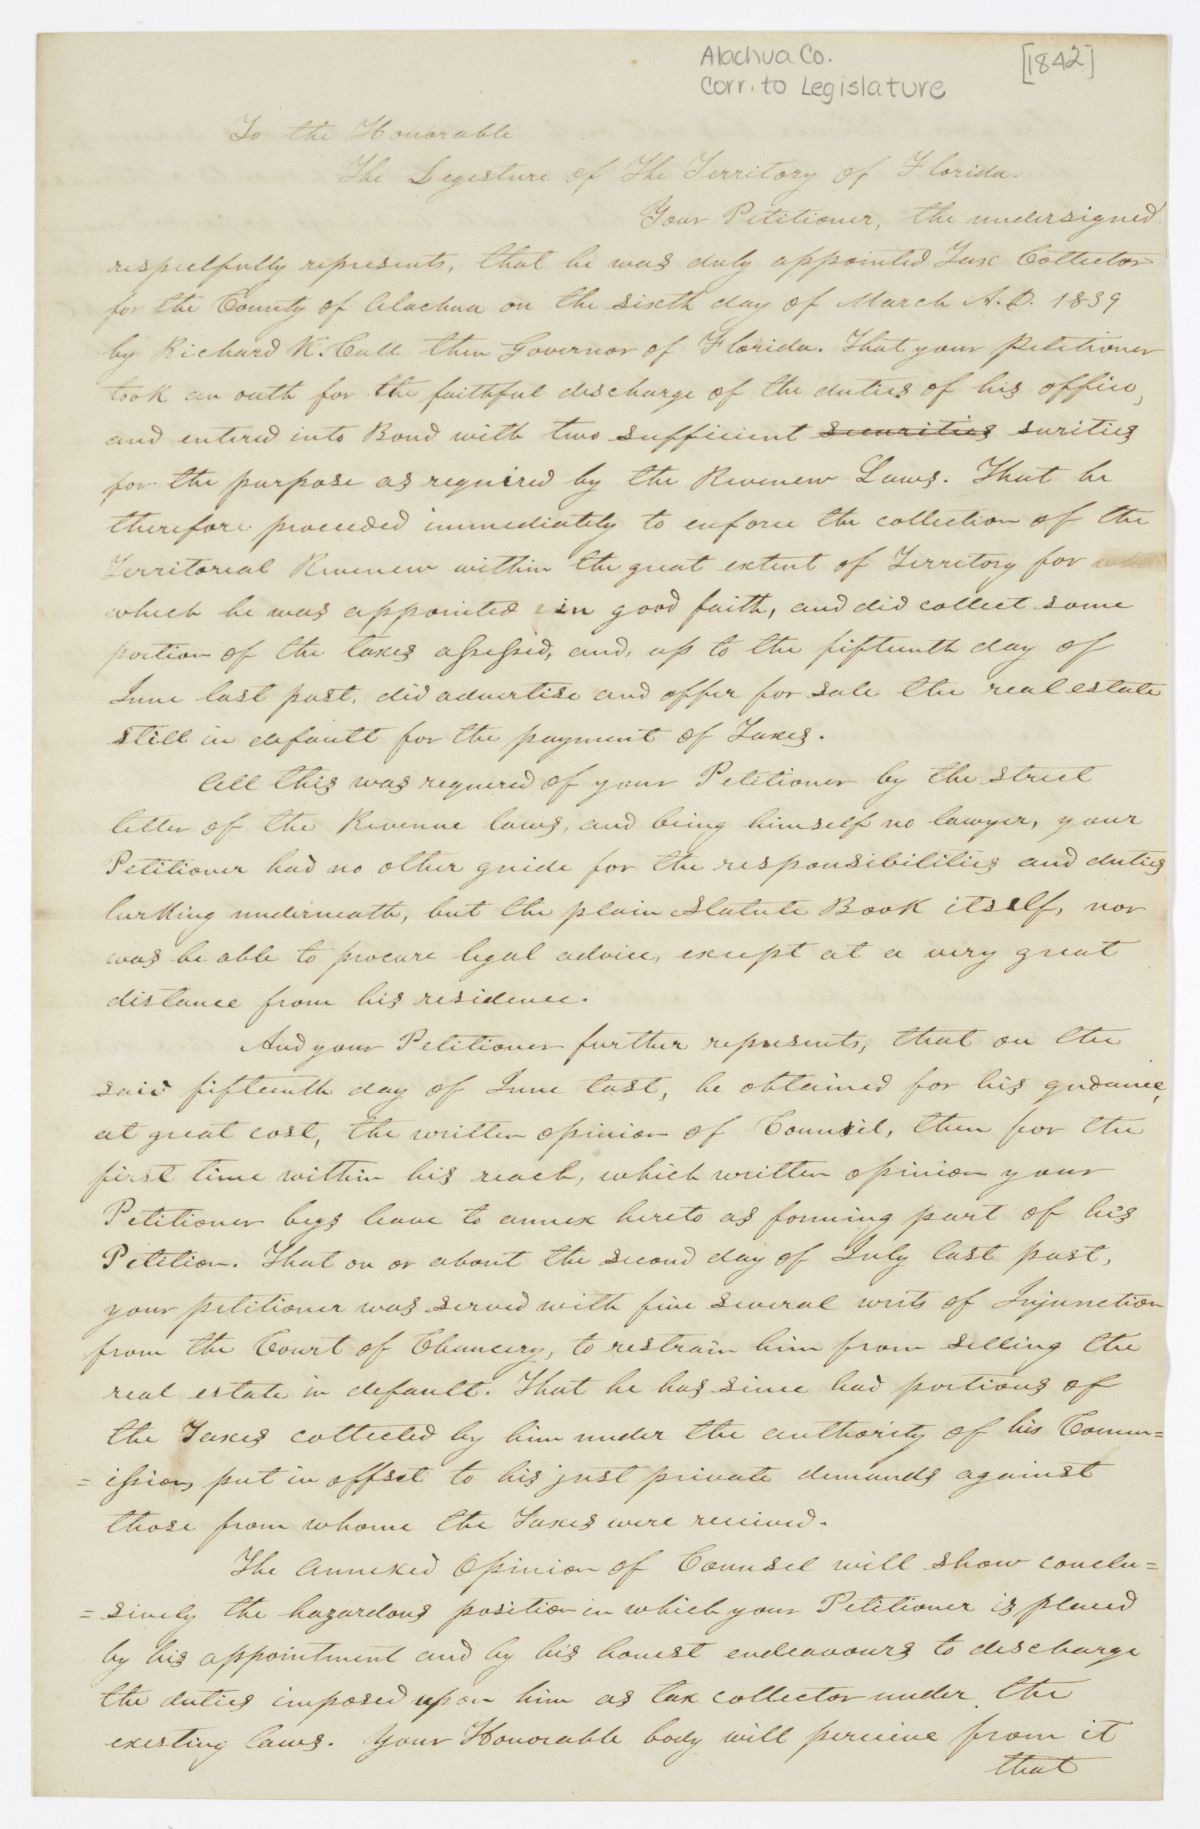 Alachua Co. [1842]
Corr. to Legislature
To the Honorable
The Legesture of The Territory of Florida.
Your Petitioner, the undersigned
respectfully represents, that he was duly appointed Tax Collector
for the County of Alachua on the sixth day of March A.D. 1839
by Richard K. Call then Governor of Florida. That your Petitioner
took an oath for the faithful descharge of the duties of his office,
and entered into Bond with two sufficient securities surities
for the purpose as required by the Revenew Laws. That he
therefore proceeded immediately to enforce the collection of the
Territorial Revenew within the great extent of Territory for
which he was appointed in good faith, and did collect some
portion of the taxes assessed, and, up to the fifteenth day of
June last past, did advertise and offer for sale the real estate
still in default for the payment of Taxes.
All this was requered of your Petitioner by the street
letter of the Revenue laws, and being himself no lawyer, your
Petitioner had no other guide for the responsibilities and duties
lurking underneath, but the plain Statute Book itself, nor
was he able to procure legal advice, except at a very great
distance from his residence.
And your Petitioner further represents, that on the
said fifteenth day of June last, he obtained for his gudance,
at great cost, the written opinion of Council, then for the
first time within his reach, which written opinion your
Petitioner begs leave to annex hereto as forming part of his
Petition. That on or about the second day of July last past,
your petitioner was served with five several writs of Injunction
from the Court of Chancery, to restrain him from selling the
real estate in default. That he has since had portions of
the Taxes collected by him under the authority of his Comm=
=ission put in offset to his just private demands against
those from whome the Taxes were received.
The annexed Opinion of Counsel will show conclu=
=sively the hazardous position in which your Petitioner is placed
by his appointment and by his honest endeavours to descharge
the duties imposed upon him as tax collector under the
existing laws. Your Honorable body will percieve from it
that